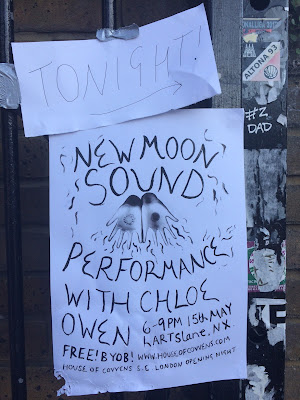 TONIGHT!
NEW MOON
SOUND
PERFORMANCE
WITH CHLOE
OWEN
6-9PM 15th MAY
hARTslane, NX
FREE! BYOB! WWW.HOUSEOFCOVVENS.COM
HOUSE OF COVVENS S.E. LONDON OPENING NIGHT
ALTONA 93
#2
DAD